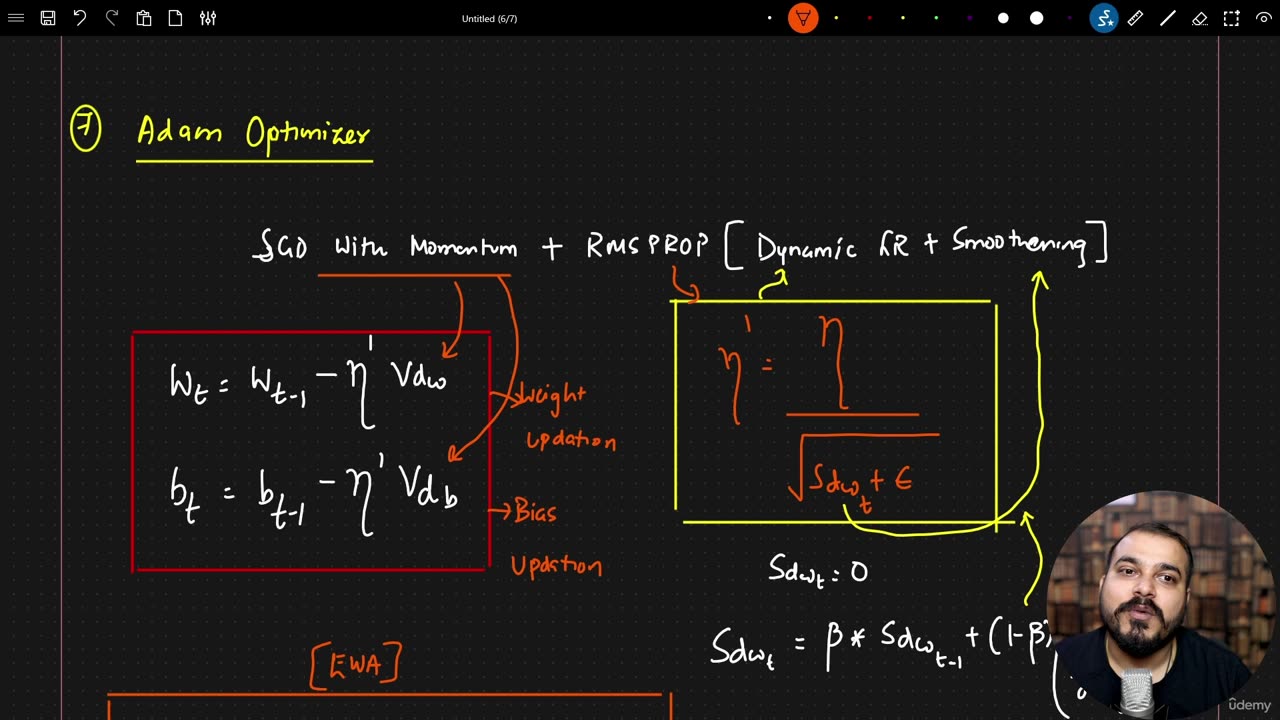 Untitled (6/7)
7 Adam Optimizer
SGD with Momentum + RMSPROP [Dynamic LR + Smoothening]
Wt = Wt-1 - η' Vdw
Weight Updation
bt = bt-1 - η' Vdb
Bias Updation
η' = η / √(Sdwt + ε)
Sdwt = 0
Sdwt = β * Sdwt-1 + (1-β)
[EWA]
ûdemy